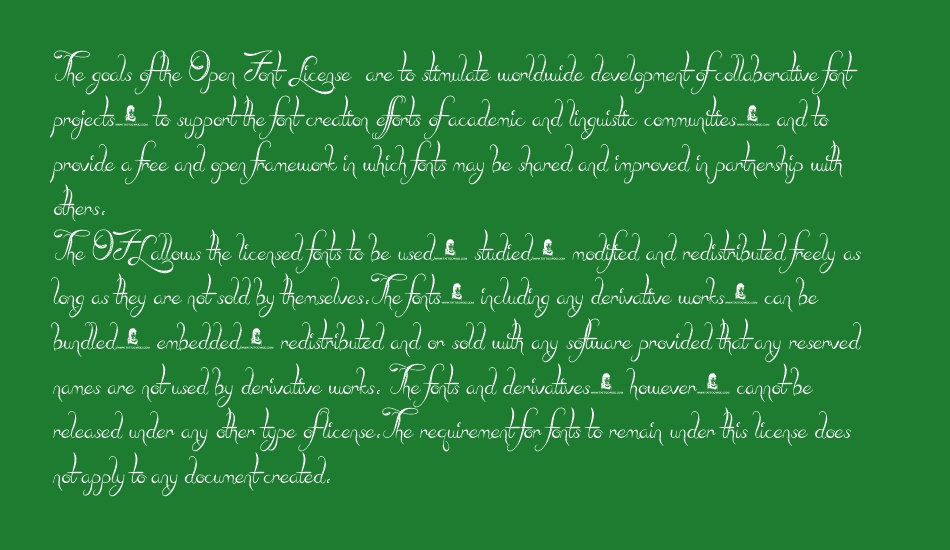 The goals of the Open Font License are to stimulate worldwide development of collaborative font
projects to support the font creation efforts of academic and linguistic communities and to
provide a free and open framework in which fonts may be shared and improved in partnership with
others.
The OFL allows the licensed fonts to be used studied modified and redistributed freely as
long as they are not sold by themselves. The fonts including any derivative works can be
bundled embedded redistributed and or sold with any software provided that any reserved
names are not used by derivative works. The fonts and derivatives however cannot be
released under any other type of license. The requirement for fonts to remain under this license does
not apply to any document created.